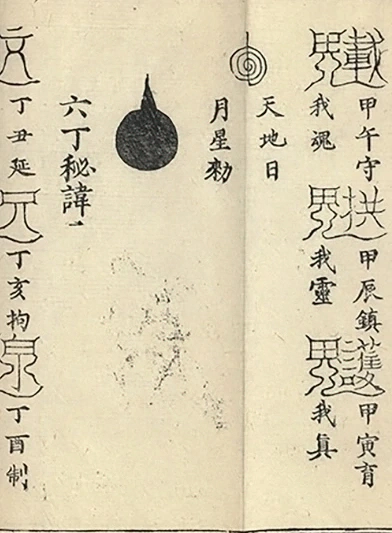 甲午守
我魂
甲辰鎮
我靈
甲寅育
我真
天地日
月星勑
六丁秘諱
丁丑延
丁亥拘
丁酉制